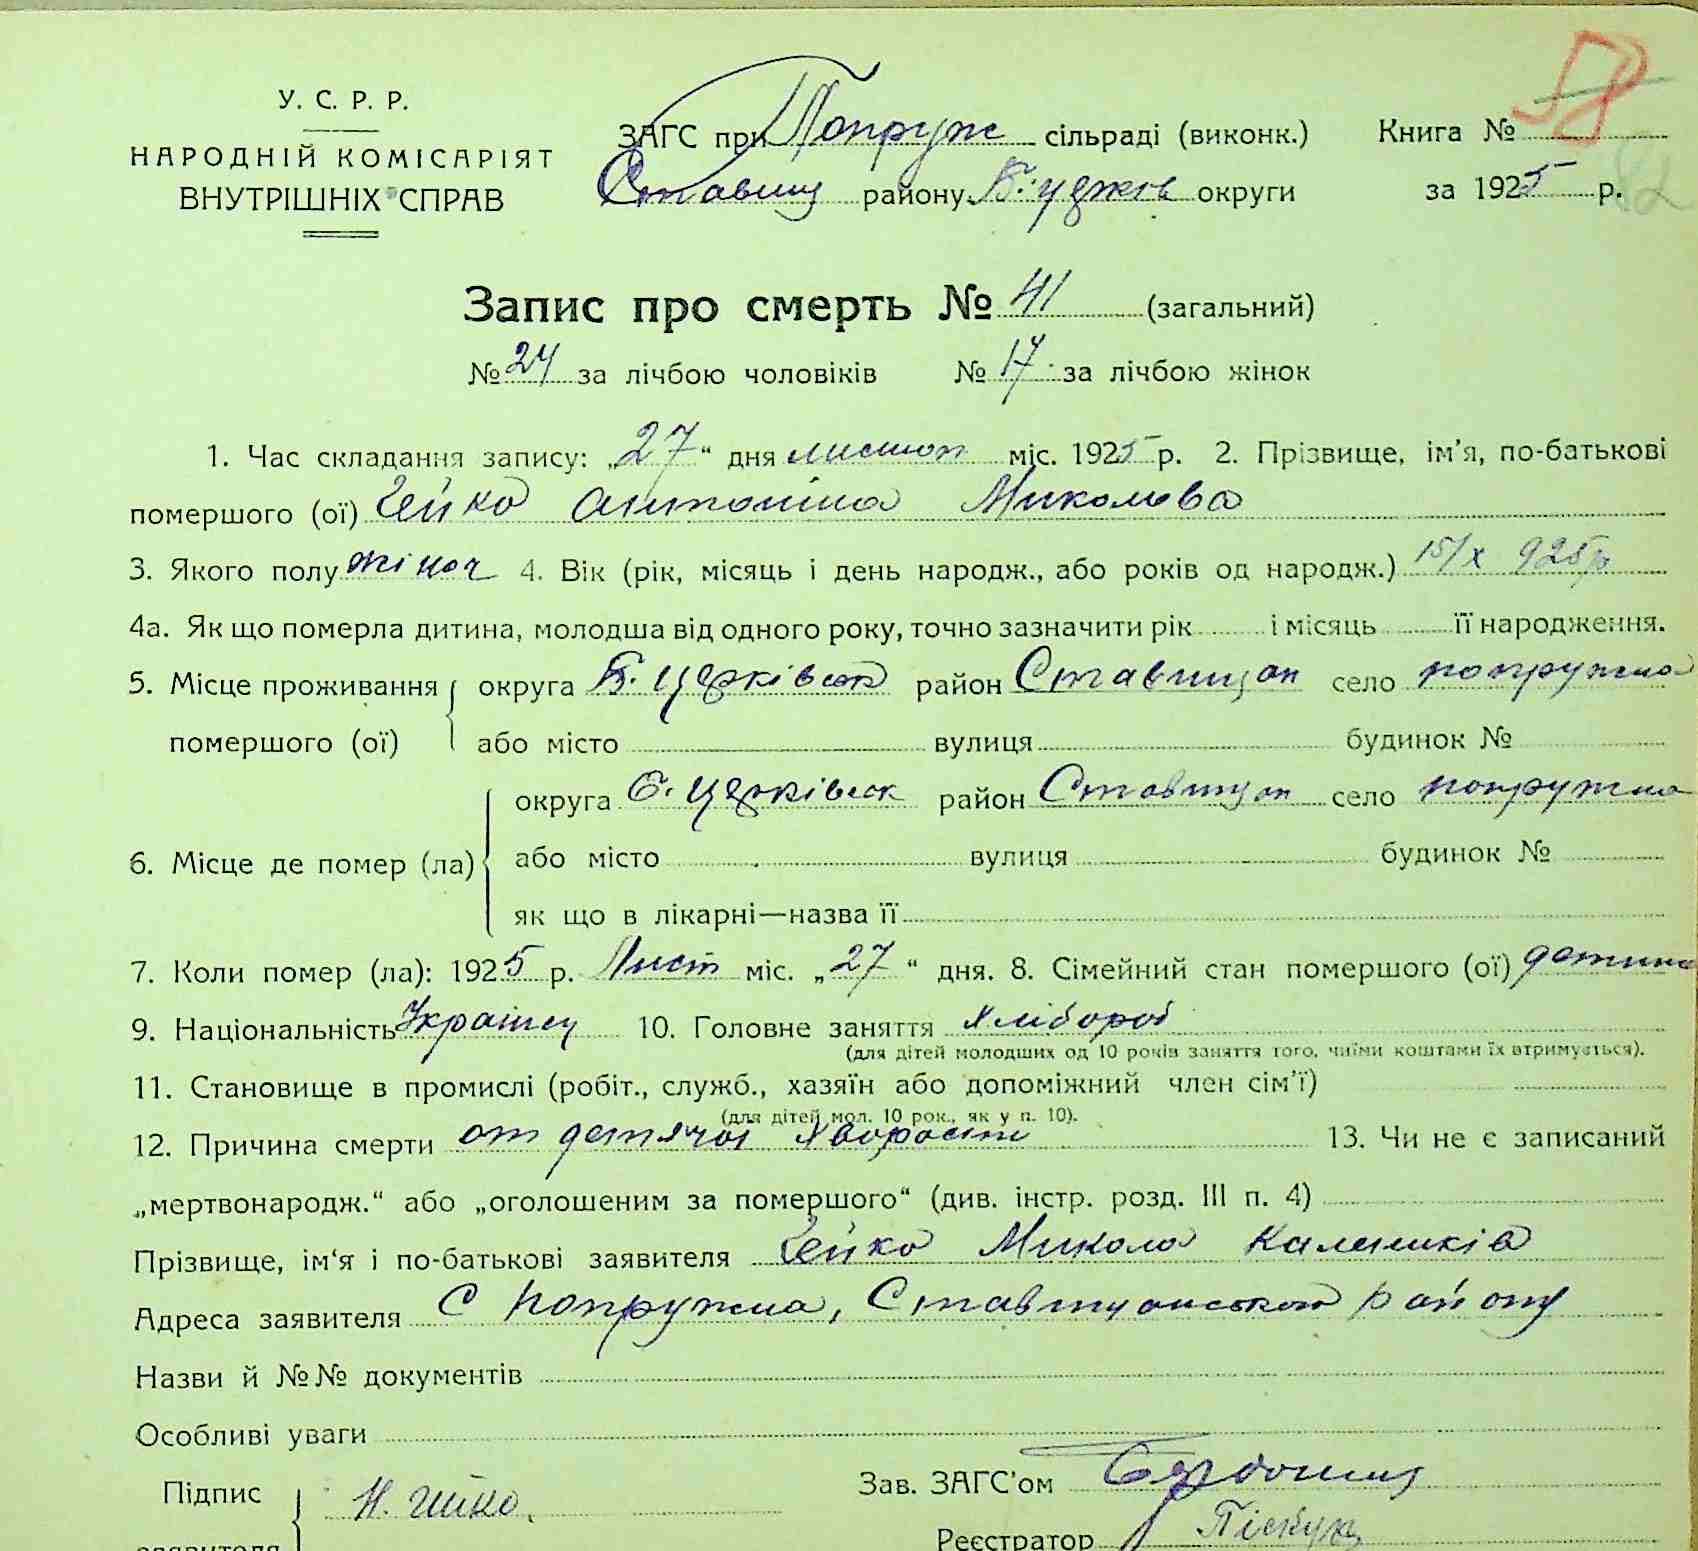 58
У. С. Р. Р.
НАРОДНІЙ КОМІСАРІЯТ
ВНУТРІШНІХ СПРАВ
ЗАГС при Попруж сільраді (виконк.) Книга №
Ставищ району Б.церков округи за 1925 р.
Запис про смерть № 41 (загальний)
№ 24 за лічбою чоловіків № 17 за лічбою жінок
1. Час складання запису: „27“ дня листоп міс. 1925 р. 2. Прізвище, ім'я, по-батькові
помершого (ої) Гейко Антоніна Миколова
3. Якого полу жіноч 4. Вік (рік, місяць і день народж., або років од народж.) 15/X 925 р
4а. Як що померла дитина, молодша від одного року, точно зазначити рік і місяць її народження.
5. Місце проживання округа Б. Церківськ район Ставищан село Попружна
помершого (ої) або місто вулиця будинок №
округа Б. Церківськ район Ставищан село попружна
6. Місце де помер (ла) або місто вулиця будинок №
як що в лікарні—назва її
7. Коли помер (ла): 1925 р. Лист міс. „27“ дня. 8. Сімейний стан помершого (ої) детина
9. Національність Україн 10. Головне заняття хлібороб
(для дітей молодших од 10 років заняття того, чиїми коштами їх втримується).
11. Становище в промислі (робіт., служб., хазяїн або допоміжний член сім'ї)
(для дітей мол. 10 рок., як у п. 10).
12. Причина смерти от детячої хворости 13. Чи не є записаний
„мертвонародж.“ або „оголошеним за помершого“ (див. інстр. розд. III п. 4)
Прізвище, ім'я і по-батькові заявителя Гейко Микола Калеників
Адреса заявителя С Попружна, Ставищанської району
Назви й №№ документів
Особливі уваги
Підпис Н. Гейко. Зав. ЗАГС'ом
заявителя Реєстратор